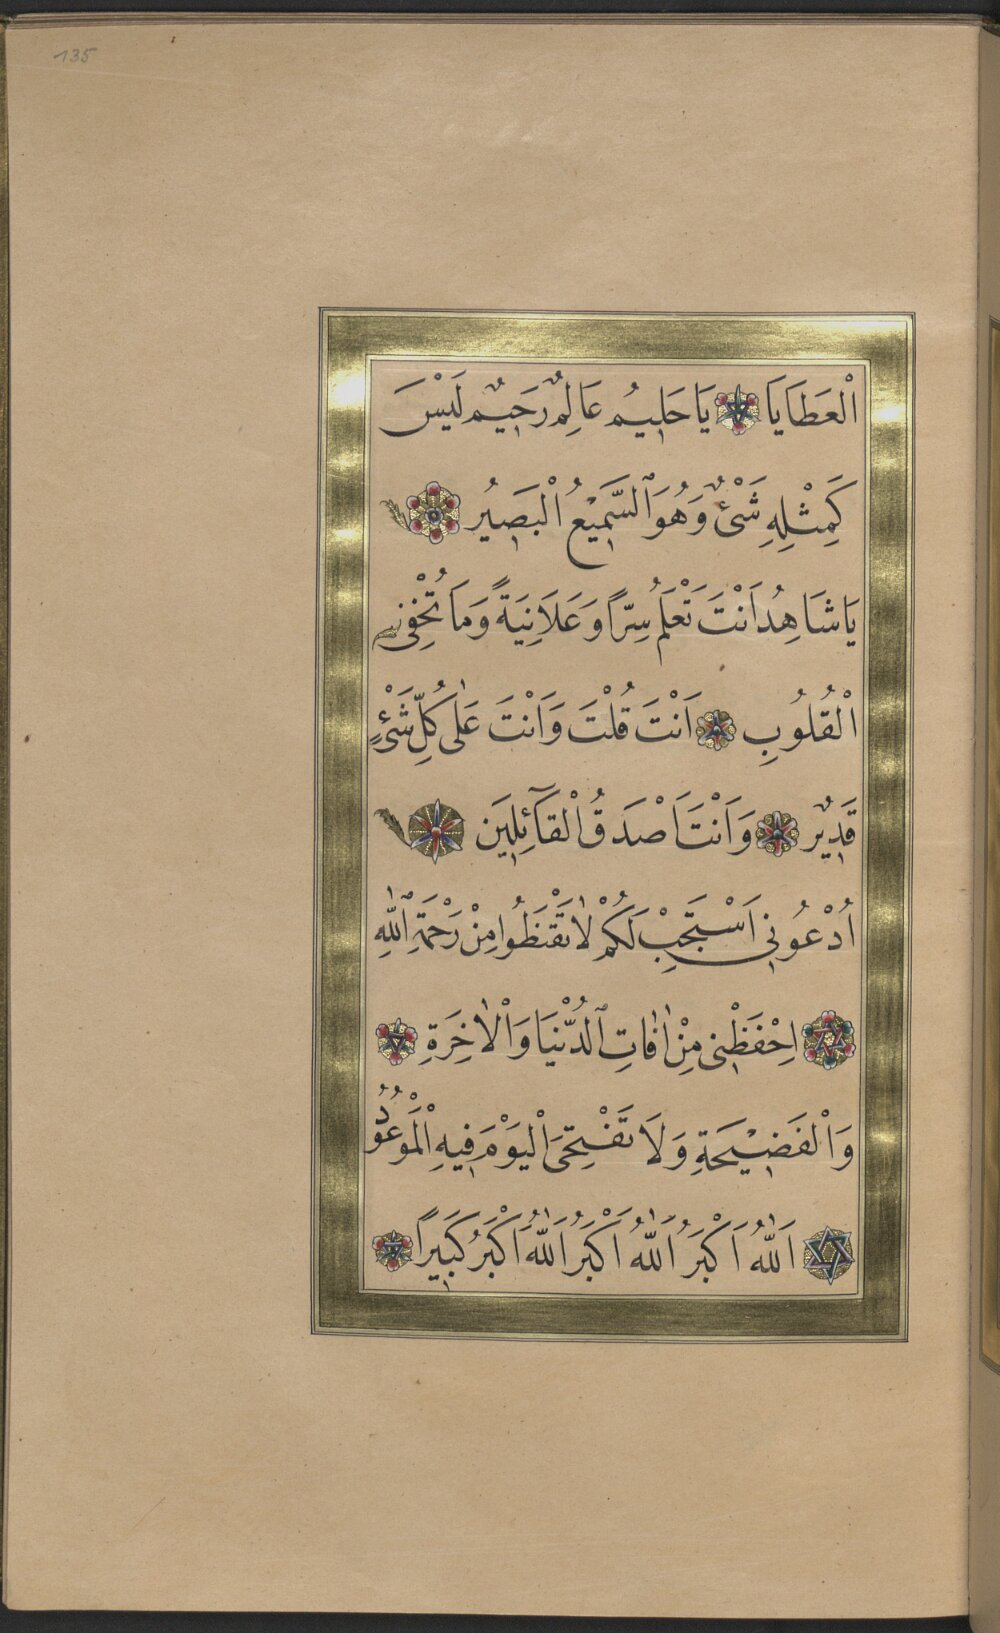 135
اْلعَطَايَا يَا حَلِيمُ عَالِمٌ رَحِيمٌ لَيْسَ
كَمِثْلِهِ شَىْءٌ وَهُوَ ٱلسَّمِيْعُ اْلبَصِيرُ
يَا شَاهِدُ اَنْتَ تَعْلَمُ سِرًّا وَعَلَانِيَةً وَمَا تُخْفِى
اْلقُلُوبِ اَنْتَ قُلْتَ وَاَنْتَ عَلٰى كُلِّ شَىْءٍ
قَدِيْرٌ وَاَنْتَ اَصْدَقُ اْلقَآئِلِينَ
اُدْعُونِى اَسْتَجِبْ لَكُمْ لَا تَقْنَطُوا مِنْ رَحْمَةِ ٱللّٰهِ
اِحْفَظْنِى مِنْ اٰفَاتِ ٱلدُّنْيَا وَاْلاٰخِرَةِ
وَاْلفَضِيْحَةِ وَلَا تَفْتِحْنَى اْليَوْمَ فِيهِ اْلمَوْعُوْدُ
اَللّٰهُ اَكْبَرُ اَللّٰهُ اَكْبَرُ اَللّٰهُ اَكْبَرُ كَبِيرًا